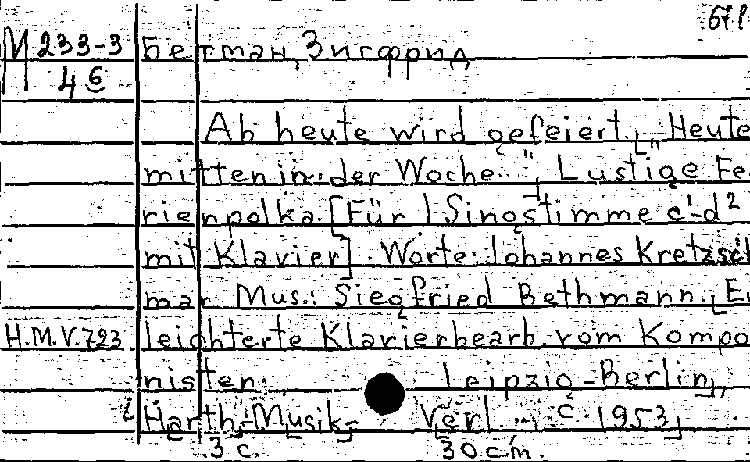 67.1
М 233-3 Бетман, Зигфрид
46
Ab heute wird gefeiert. „Heute
mitten in der Woche..." Lustige Fe-
rienpolka. [Für 1 Singstimme c'-d²
mit Klavier]. Worte: Johannes Kretzsch
mar. Mus.: Siegfried Bethmann. [Er
H.M.V.723 leichterte Klavierbearb. vom Kompo
nisten.] Leipzig-Berlin,
Harth-Musik-Verl., c. 1953,
3 с. 30 cm.